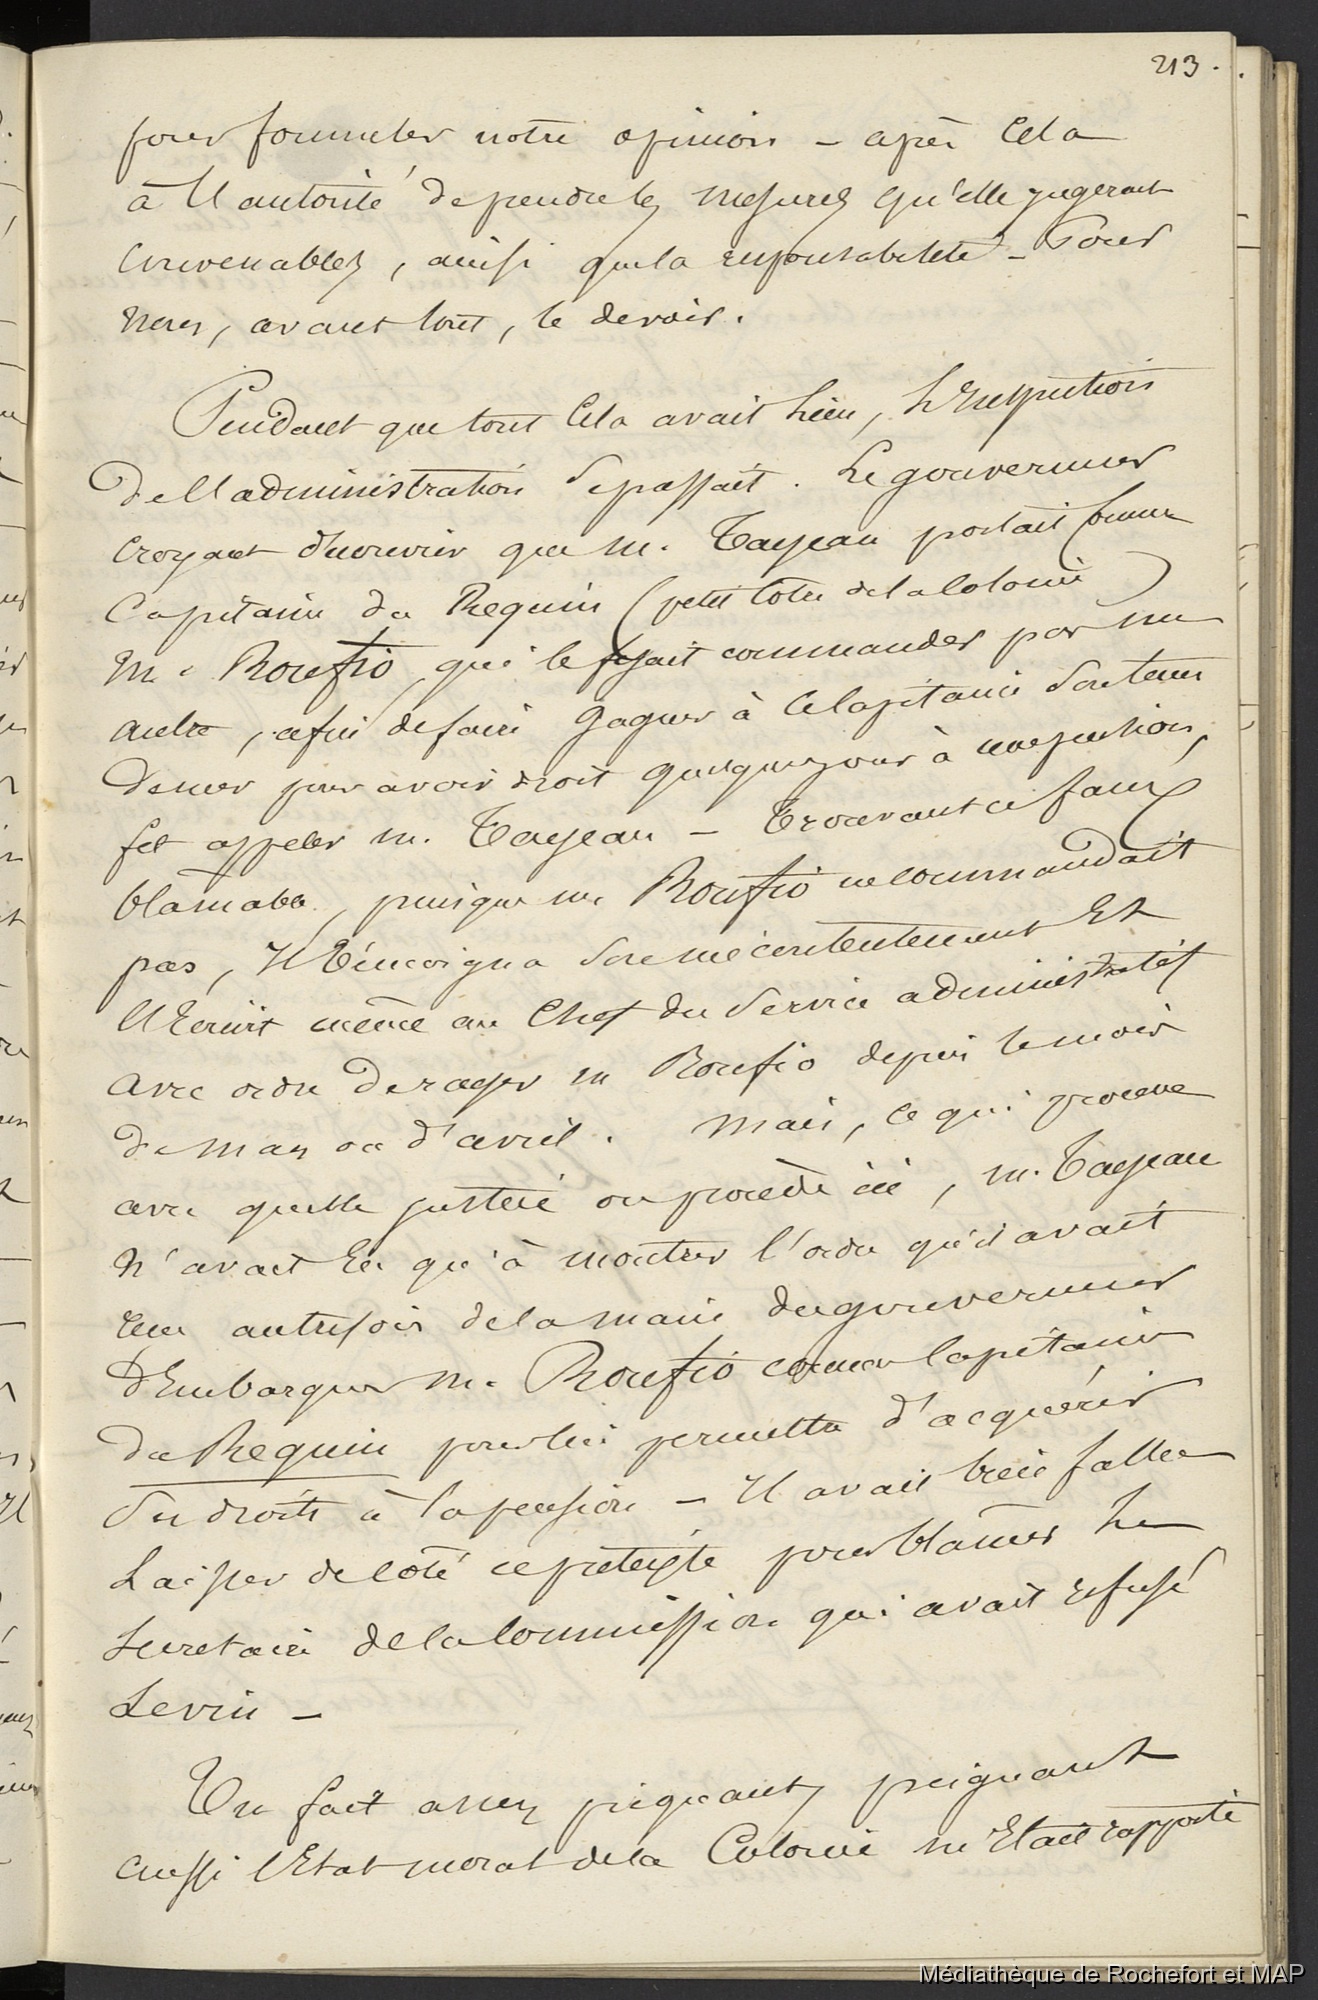 213.
pour formuler notre opinion - après cela
à l'autorité de prendre les mesures qu'elle jugerait
convenables, ainsi que la responsabilité - Pour
nous, avant tout, le devoir.
Pendant que tout cela avait lieu, L'Inspection
de l'administration se passait. Le gouverneur
croyant découvrir que M. Tayeau portait comme
Capitaine du Requin (petit cotre de la Colonie)
M. Roufio, qui le fesait commander par un
autre, afin de faire gagner à ce Capitaine son temps
de mer pour avoir droit quelque jour à une pension,
fit appeler M. Tayeau - Trouvant ce faux
blamable, puisque M. Roufio ne commandait
pas, Il témoigna son mécontentement Et
Il Ecrivit même au Chef du Service administratif
avec ordre de rayer M Roufio depuis le mois
de Mars ou d'avril. Mais, ce qui prouve
avec quelle justice on procède ici, M. Tayeau
n'avait Eu qu'à montrer l'ordre qu'il avait
reçu autrefois de la main du gouverneur
d'Embarquer M. Roufio comme Capitaine
du Requin pour lui permettre d'acquérir
des droits à la pension - Il avait bien fallu
Laisser de côté ce prétexte pour blamer Le
Secretaire de la Commission qui avait refusé
Le vin -
Un fait assez piquant, peignant
aussi l'Etat moral de la Colonie m'Etait rapporté
Médiathèque de Rochefort et MAP